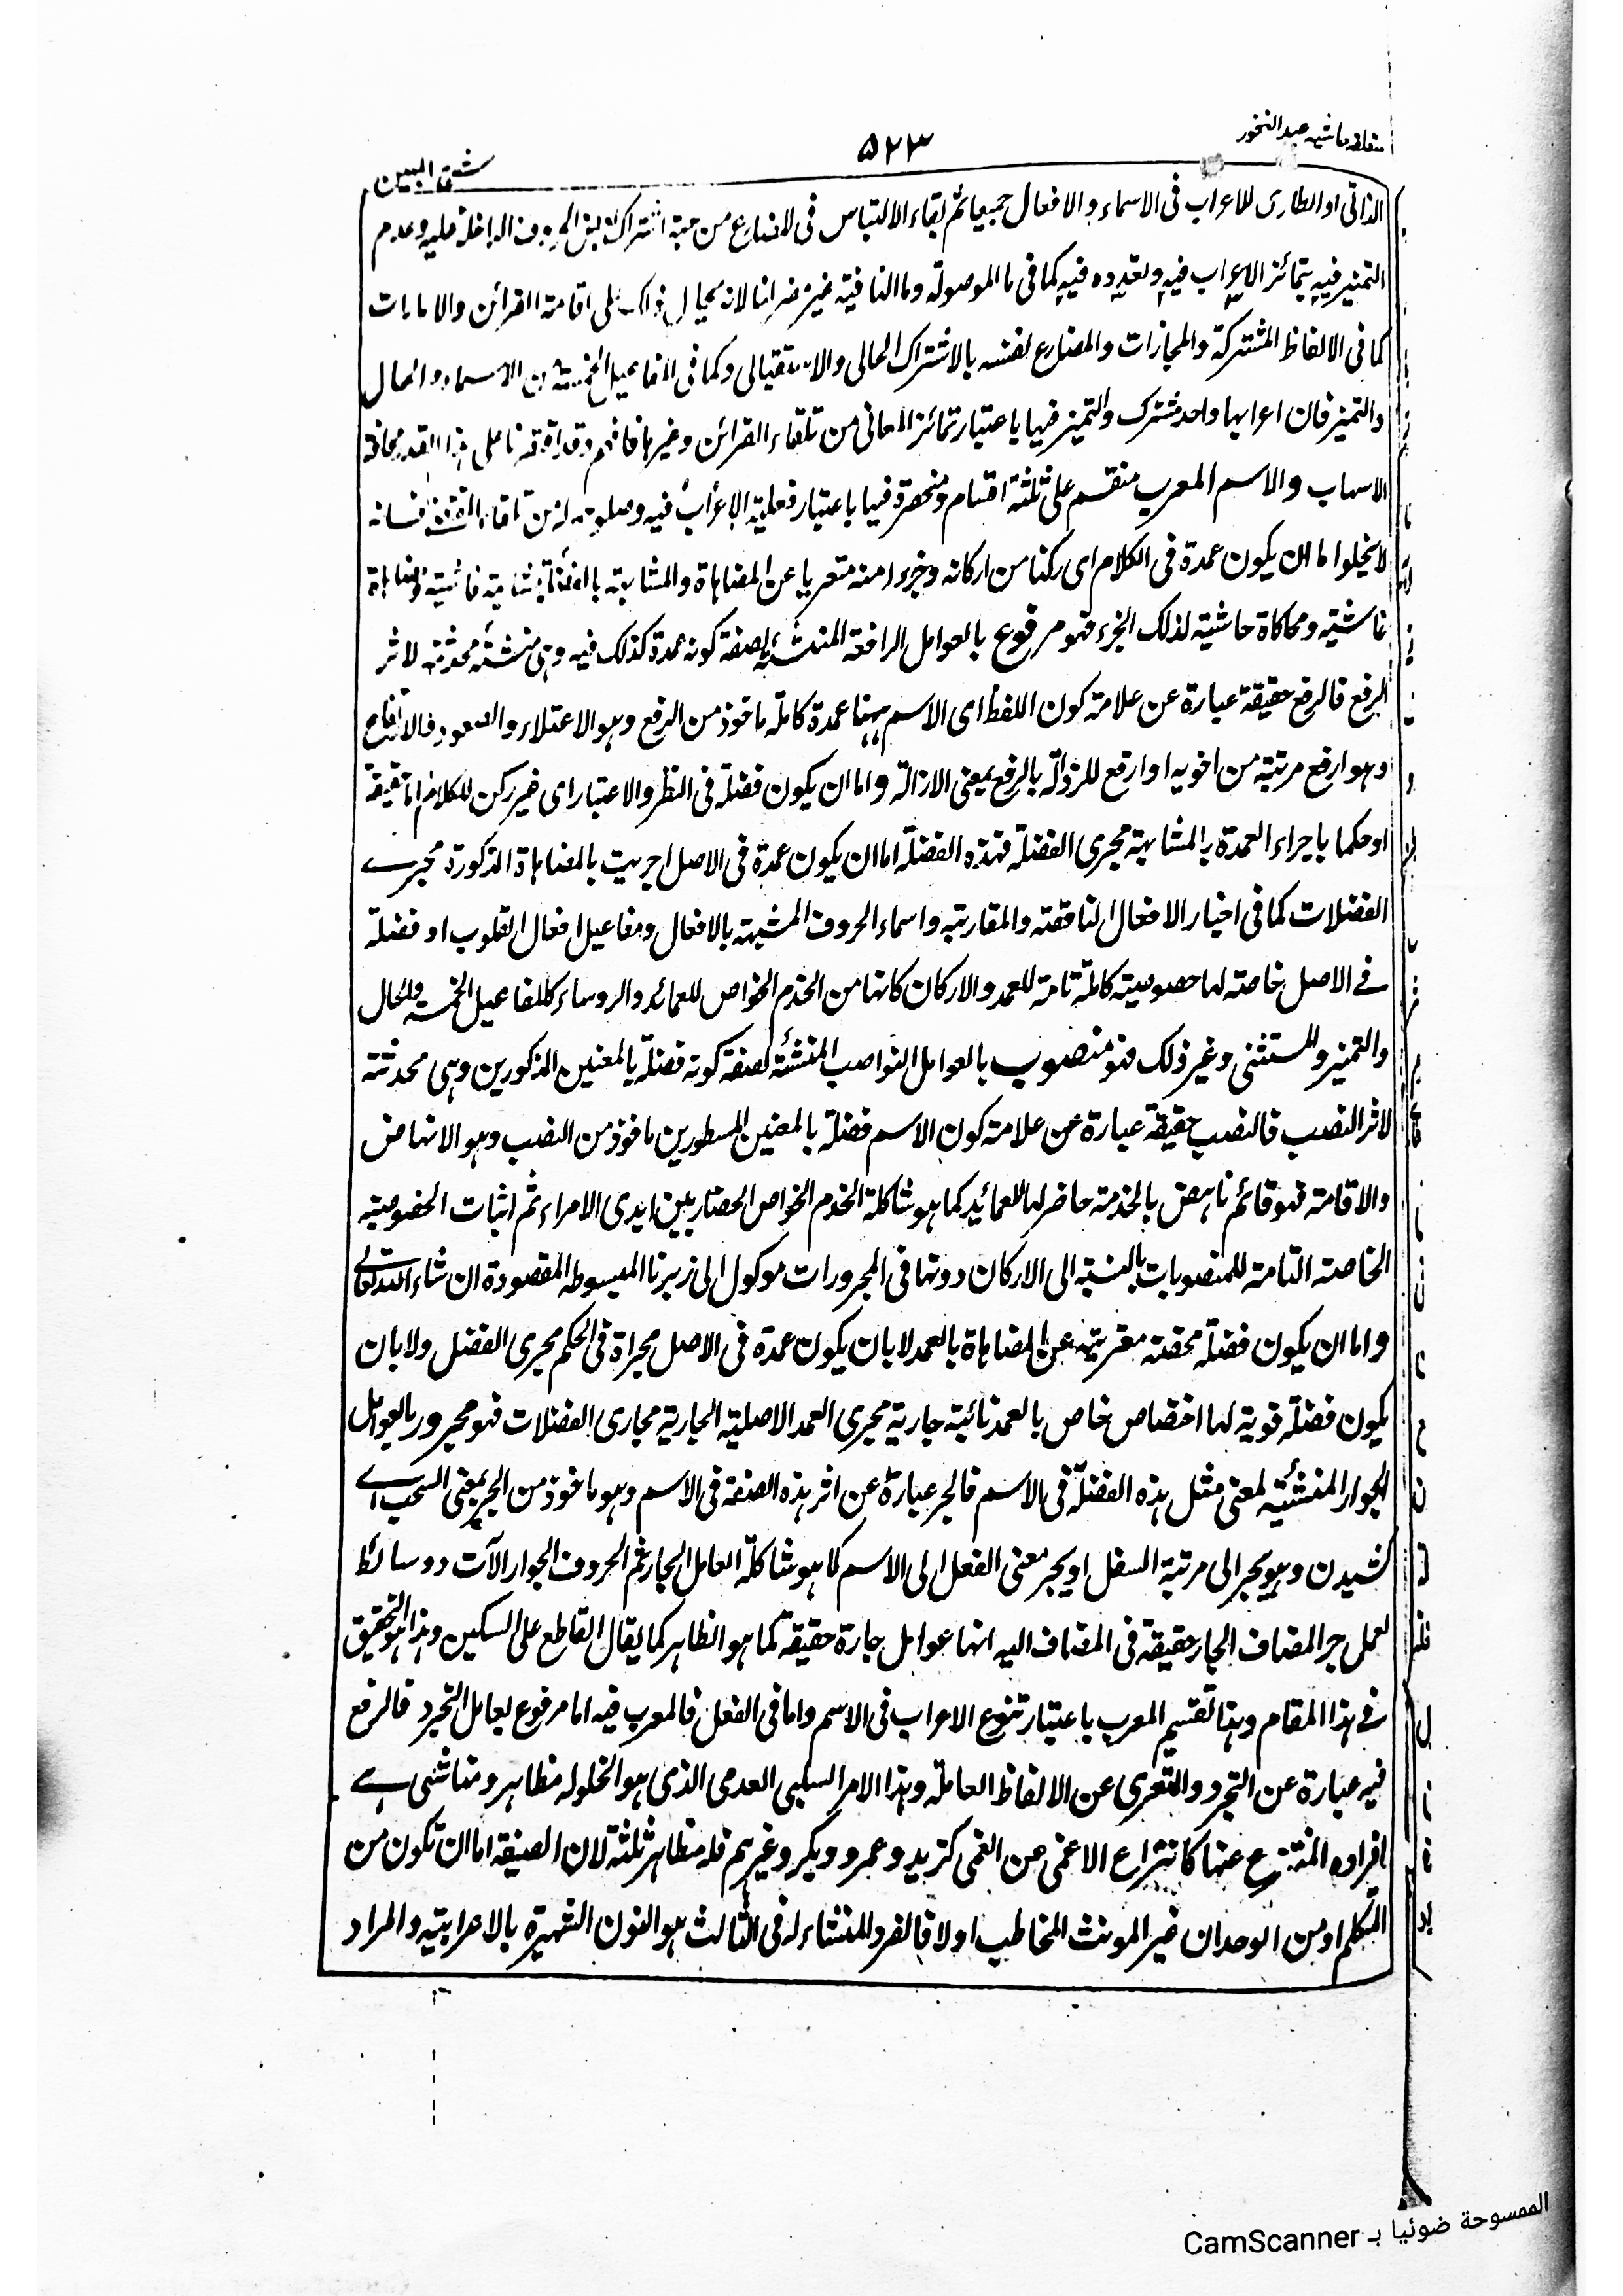 متعلقہ حاشیہ عبد الغفور
۵۲۳
الذاتی او الطاری للاعراب فی الاسماء و الافعال جمیعا ثم بقاء الالتباس فی المضارع من جہۃ اشتراکہ بین الحروف الداخلۃ علیہ وعدم
التمیز فیہ بتمائز الاعراب فیہ وتعددہ فیہ کما فی ما الموصولۃ وما النافیۃ غیر ضر لنا لانہ محال ذلک علی اقامۃ القرائن والامارات
کما فی الالفاظ المشترکۃ والمجازات والمضارع نفسہ بالاشتراک الحالی والاستقبالی وکما فی المفاعیل الخمسۃ من الاسماء والحال
والتمیز فان اعرابہا واحد مشترک والتمیز فیہا باعتبار تمائز المعانی من تلقاء القرائن وغیرہا فافہم وقد اقتصرنا علی ہذا القدر مخافۃ
الاسہاب والاسم المعرب منقسم علی ثلثۃ اقسام ومنحصرۃ فیہا باعتبار فعلیۃ الاعراب فیہ من تلقاء المقتضی فانہ
لا یخلوا اما ان یکون عمدۃ فی الکلام ای رکنا من ارکانہ وجزء امنہ متعریا عن المضاہاۃ والمشابہۃ بالفضلۃ
غاشیۃ ومحاکاۃ حاشیۃ لذلک الجزء فہو مرفوع بالعوامل الرافعۃ المنشئۃ لصفۃ کونہ عمدۃ کذلک فیہ وہی منشئۃ محدثۃ لاثر
الرفع فالرفع حقیقۃ عبارۃ عن علامۃ کون اللفظ ای الاسم ہہنا عمدۃ کاملۃ ماخوذ من الرفع وہو الاعتلاء والصعود فالارتفاع
وہو ارفع مرتبۃ من اخویہ او ارفع للرذالۃ بالرفع بمعنی الازالۃ واما ان یکون فضلۃ فی النظر والاعتبار ای غیر رکن للکلام اما حقیقۃ
او حکما باجراء العمدۃ بالمشابہۃ مجری الفضلۃ فہذہ الفضلۃ اما ان یکون عمدۃ فی الاصل اجریت بالمضاہاۃ المذکورۃ مجرے
الفضلات کما فی اخبار الافعال الناقصۃ والمقاربۃ واسماء الحروف المشبہۃ بالافعال ومفاعیل افعال القلوب او فضلۃ
فے الاصل خاصتہ لہا خصوصیۃ کاملۃ تامۃ للعمد والارکان کانہا من الخدم الخواص للعمائد والروساء کالمفاعیل الخمسۃ والحال
والتمیز والمستثنی وغیر ذلک فہو منصوب بالعوامل النواصب المنشئۃ لصفۃ کونہ فضلۃ بالمعنین المذکورین وہی محدثۃ
لاثر النصب فالنصب حقیقۃ عبارۃ عن علامۃ کون الاسم فضلۃ بالمعنین المسطورین ماخوذ من النصب وہو الانہاض
والاقامۃ فہو قائم ناہض بالخدمۃ حاضر لہا للعمائد کما ہو شاکلۃ الخدم الخواص الحضار بین ایدی الامراء ثم اثبات الخصوصیۃ
الخاصۃ التامۃ للمنصوبات بالنسبۃ الی الارکان دونہا فی المجرورات موکول الی زبرنا المبسوطہ المقصودۃ ان شاء اللہ تعالے
واما ان یکون فضلۃ محضۃ معریۃ عن المضاہاۃ بالعمد لا بان یکون عمدۃ فی الاصل مجراۃ فی الحکم مجری الفضل ولا بان
یکون فضلۃ قویۃ لہا اختصاص خاص بالعمد نائبۃ جاریۃ مجری العمد الاصلیۃ الجاریۃ مجاری الفضلات فہو مجرور بالعوامل
الجوار المنشئیۃ لمعنی مثل ہذہ الفضلۃ فی الاسم فالجر عبارۃ عن اثر ہذہ الصفۃ فی الاسم وہو ماخوذ من الجر بمعنی السحب اے
کشیدن وہو یجر الی مرتبۃ السفل او یجر معنی الفعل الی الاسم کما ہو شاکلۃ العامل الجار ثم الحروف الجوار الآت دوسائط
لعمل جر المضاف الجار حقیقۃ فی المضاف الیہ انہا عوامل جارۃ حقیقۃ کما ہو الظاہر کما یقال القاطع علی السکین وہذا ہو التحقیق
فے ہذا المقام وہذا تقسیم المعرب باعتبار تنوع الاعراب فی الاسم واما فی الفعل فالمعرب فیہ اما مرفوع بعامل التجرد فالرفع
فیہ عبارۃ عن التجرد والتعری عن الالفاظ العاملۃ وہذا الامر السلبی العدمی الذی ہو الخلولہ مظاہر ومناشی ہے
افرادہ المنتزع عنہا کانتزاع الاعمی عن العمی کزید وعمرو وبکر وغیرہم فلہ مظاہر ثلثۃ لان الصیغۃ اما ان تکون من
المتکلم او من الوحدان غیر المونث المخاطب او لا فالفرد للمنشاء لہ فی الثالث ہو النون الشہیرۃ بالاعرابیۃ والمراد
الممسوحة ضوئيا بـ CamScanner